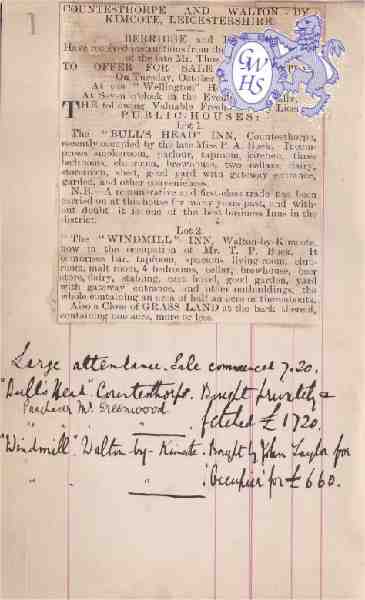 COUNTESTHORPE AND WALTON-BY-
KIMCOTE, LEICESTERSHIRE.
BERRIDGE and
Have received instructions from the
of the late Mr. Thos.
TO OFFER FOR SALE
On Tuesday, October
At the "Wellington"
At Seven o'clock in the Evening
THE following Valuable Freehold
PUBLIC-HOUSES:
Lot 1.
The "BULL'S HEAD" INN, Countesthorpe,
recently occupied by the late Miss P. A. Buck. It com-
prises smokeroom, parlour, taproom, kitchen, three
bedrooms, clubroom, brewhouse, two cellars, dairy,
storeroom, shed, good yard with gateway entrance,
garden, and other conveniences.
N.B.—A remunerative and first-class trade has been
carried on at this house for many years past, and with-
out doubt it is one of the best business Inns in the
district.
Lot 2.
The "WINDMILL" INN, Walton-by-Kimcote,
now in the occupation of Mr. T. P. Buck. It
comprises bar, taproom, living-room, club-
room, malt room, 4 bedrooms, cellar, brewhouse, beer
store, dairy, stabling, cart hovel, good garden, yard
with gateway entrance, and other outbuildings, the
whole containing an area of half an acre or thereabouts.
Also a Close of GRASS LAND at the back thereof,
containing one acre, more or less.
Large attendance. Sale commenced 7.20.
"Bull's Head" Countesthorpe. Bought privately &
Purchaser Mr Greenwood
" " " fetched £1720.
"Windmill" Walton-by-Kimcote. Bought by John Taylor for
" " " "Occupier" for £660.
CWHS